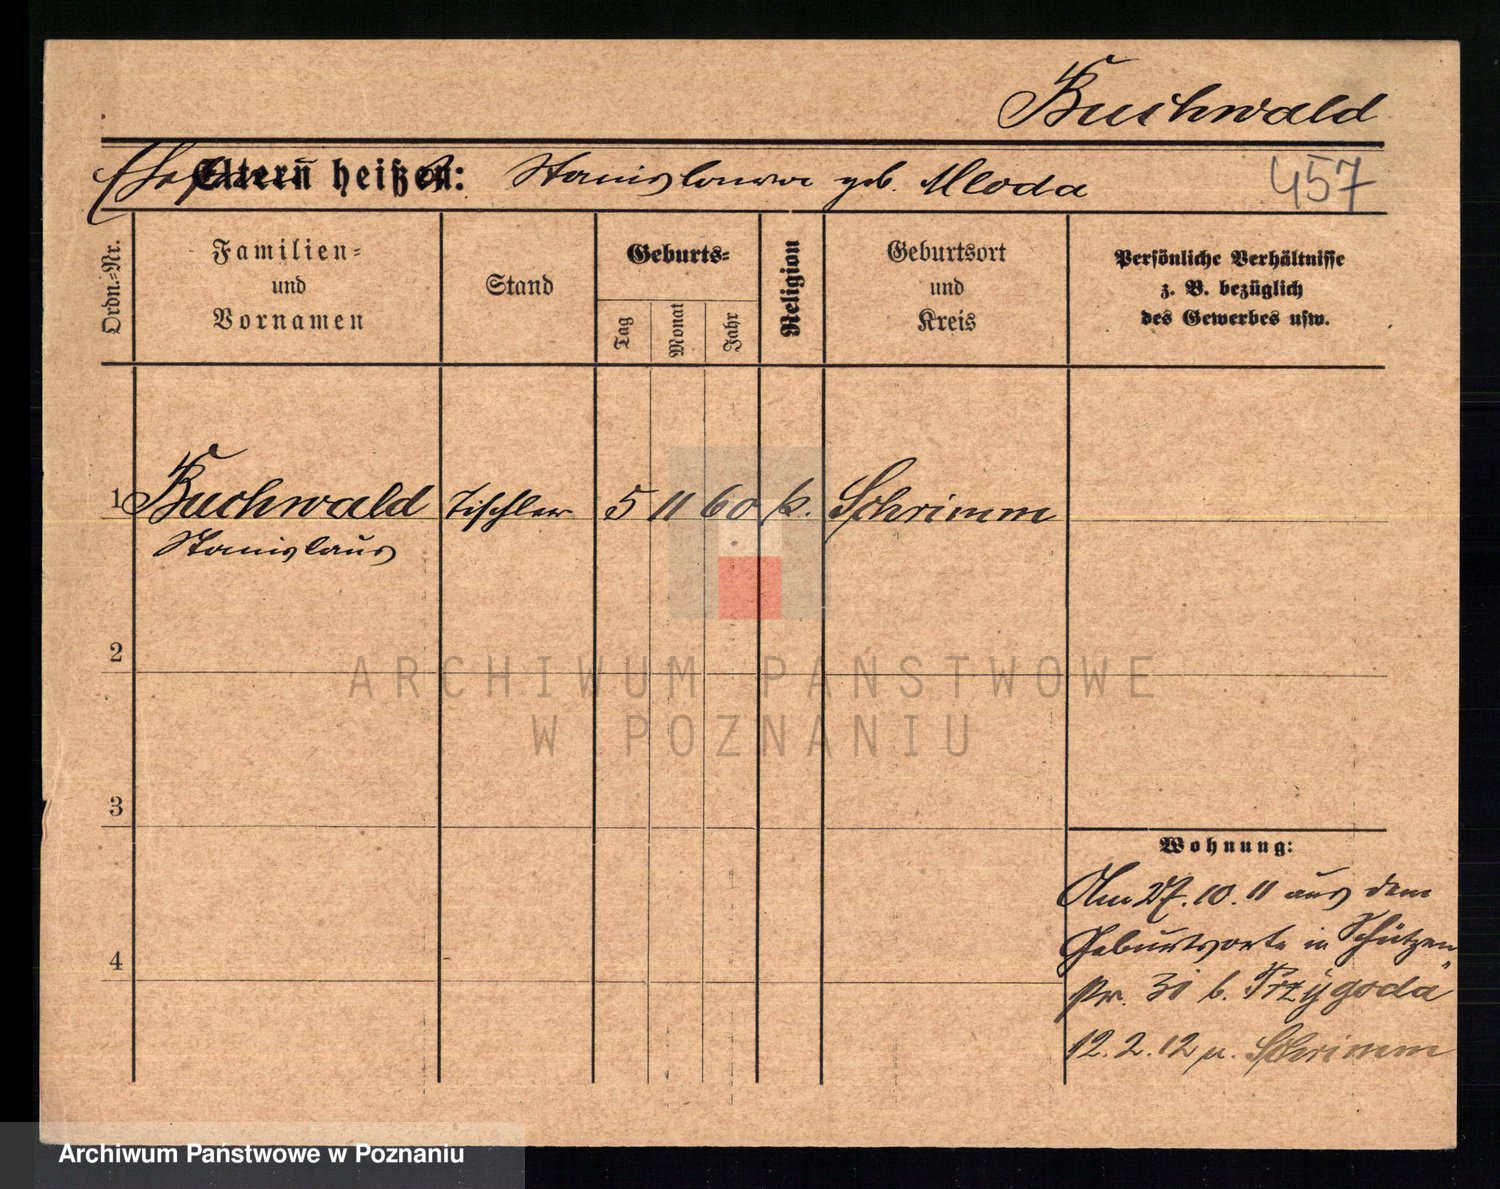 Buchwald
Eltern heißen: Stanislawa geb. Mloda
457
Ordn.-Nr.
Familien-
und
Vornamen
Stand
Geburts-
Tag
Monat
Jahr
Religion
Geburtsort
und
Kreis
Persönliche Verhältnisse
z. B. bezüglich
des Gewerbes usw.
1 Buchwald Tischler 5 11 60 k. Schrimm
Stanislaus
2
ARCHIWUM PAŃSTWOWE
W POZNANIU
3
Wohnung:
Am 27.10.11 aus dem
Geburtsorte in Schützen
4
str. 31 b. Przygoda
12.2.12 n. Schrimm
Archiwum Państwowe w Poznaniu